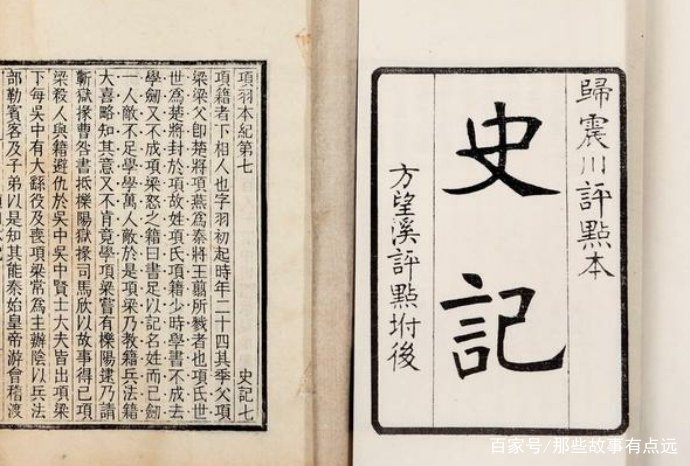 歸震川評點本
史記
方望溪評點坿後
項羽本紀第七
史記七
項籍者下相人也字羽初起時年二十四其季父項
梁梁父卽楚將項燕爲秦將王翦所戮者也項氏世
世爲楚將封於項故姓項氏項籍少時學書不成去
學劒又不成項梁怒之籍曰書足以記名姓而已劒
一人敵不足學學萬人敵於是項梁乃教籍兵法籍
大喜略知其意又不肯竟學項梁嘗有櫟陽逮乃請
蘄獄掾曹咎書抵櫟陽獄掾司馬欣以故事得已項
梁殺人與籍避仇於吳中吳中賢士大夫皆出項梁
下每吳中有大繇役及喪項梁常爲主辦陰以兵法
部勒賓客及子弟以是知其能秦始皇帝游會稽渡
百家号/那些故事有点远